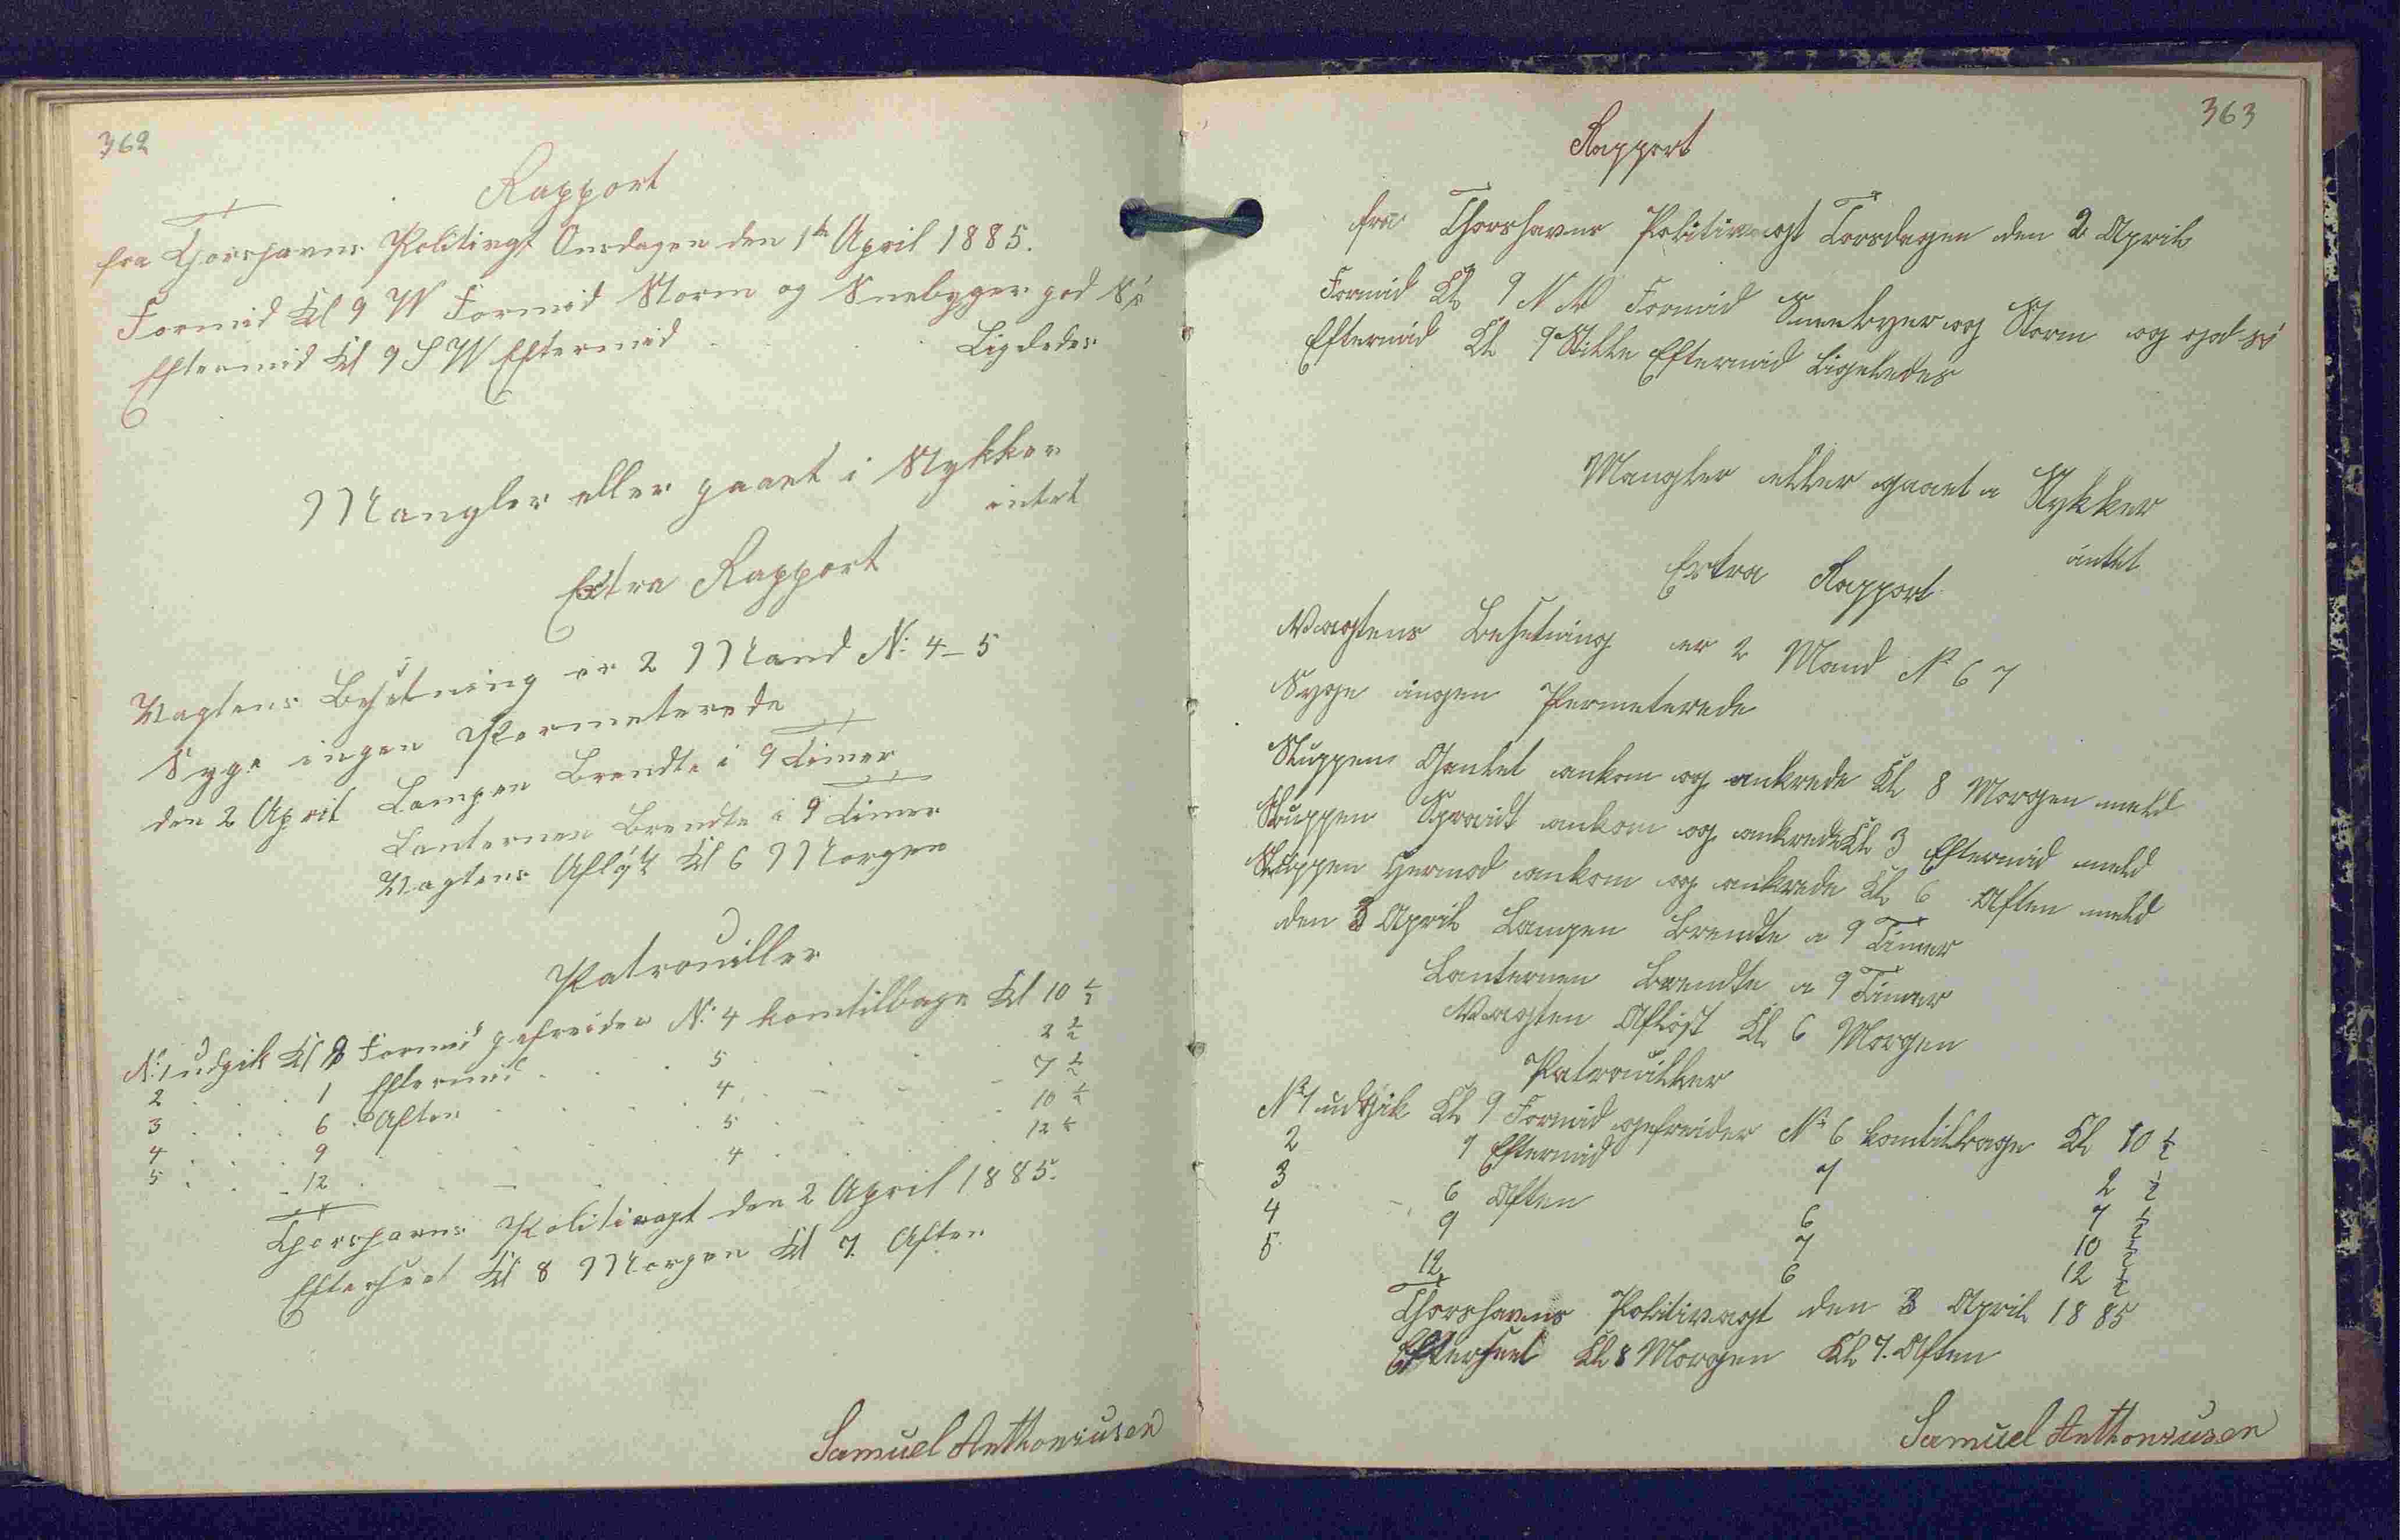 362
Rapport
fra Thorshavns Politivagt Onsdagen den 1te April 1885.
Formid Kl 9 W Formid Storm og Snebyger god Sø
Eftermid Kl 9 S W Eftermid . . . Ligeledes
Mangler eller gaaet i Stykker
intet
Extra Rapport
Vagtens Besetning er 2 Mand No. 4-5
Syge ingen Permeterede
den 2 April Lampen Brendte i 9 Timer
Lanternen Brendte i 9 Timer
Vagtens Afløst Kl 6 Morgen
Patrouiller
No. 1 udgik Kl 9 Formid gefreider No. 4 komtilbage Kl 10 ½
2 . . . 1 Eftermid . . . 5 . . . 2 ½
3 . . . 6 Aften . . . 4 . . . 7 ½
4 . . . 9 . . . 5 . . . 10 ½
5 . . . 12 . . . 4 . . . 12 ½
Thorshavns Politivagt den 2 April 1885.
Efterseet Kl 8 Morgen Kl 7. Aften
Samuel Anthoniusen
363
Rapport
fra Thorshavns Politivagt Torsdagen den 2 April
Formid Kl 9 N W Formid Sneebyer og Storm og god sø
Eftermid Kl 9 Stille Eftermid Ligeledes
Mangler eller gaaet i Stykker
intet
Extra Rapport
Vagtens Besetning er 2 Mand No 6 7
Syge ingen Permeterede
Sluppen Gentel ankom og ankrede Kl 8 Morgen meld
Sluppen Spraidt ankom og ankrede Kl 3 Eftermid meld
Sluppen Hermod ankom og ankrede Kl 6 Aften meld
den 3 April Lampen Brendte i 9 Timer
Lanternen Brendte i 9 Timer
Vagten Afløst Kl 6 Morgen
Patrouiller
No 1 udgik Kl 9 Formid gefreider No 6 komtilbage Kl 10 ½
2 1 Eftermid 7 2 ½
3 6 Aften 6 7 ½
4 9 7 10 ½
5 12 6 12 ½
Thorshavns Politivagt den 3 April 1885
Efterseet Kl 8 Morgen Kl 7. Aften
Samuel Anthoniusen